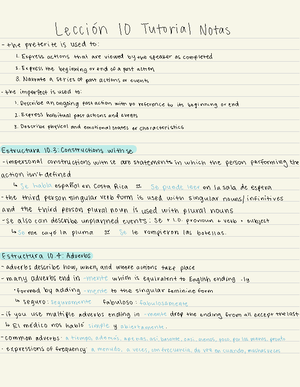 Lección 10 Tutorial Notas
- the preterite is used to:
1. Express actions that are viewed by the speaker as completed
2. Express the beginning or end of a past action
3. Narrate a series of past actions or events
- the imperfect is used to:
1. Describe an ongoing past action with no reference to its beginning or end
2. Express habitual past actions and events
3. Describe physical and emotional states or characteristics
Estructura 10.3: Constructions with se
- impersonal constructions with se are statements in which the person performing the
action isn't defined
↳ Se habla español en Costa Rica = Se puede leer en la sala de espera
- the third person singular verb form is used with singular nouns/infinitives
and the third person plural noun is used with plural nouns
- se also can describe unplanned events: se + I.O. pronoun + verb + subject
↳ Se me cayó la pluma = Se le rompieron las botellas.
Estructura 10.4: Adverbs
- adverbs describe how, when, and where actions take place
- many adverbs end in -mente which is equivalent to English ending -ly
- formed by adding -mente to the singular feminine form
↳ seguro: seguramente fabuloso: fabulosamente
- if you use multiple adverbs ending in -mente drop the ending from all except the last
↳ El médico nos habló simple y abiertamente.
- common adverbs: a tiempo, además, así, bastante, casi,
- expressions of frequency: a menudo, a veces, con frecuencia, de vez en cuando, muchas veces